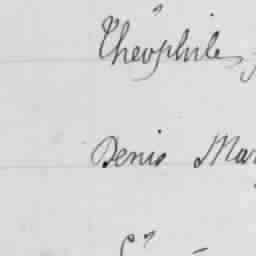 Théophile
Denis Mar